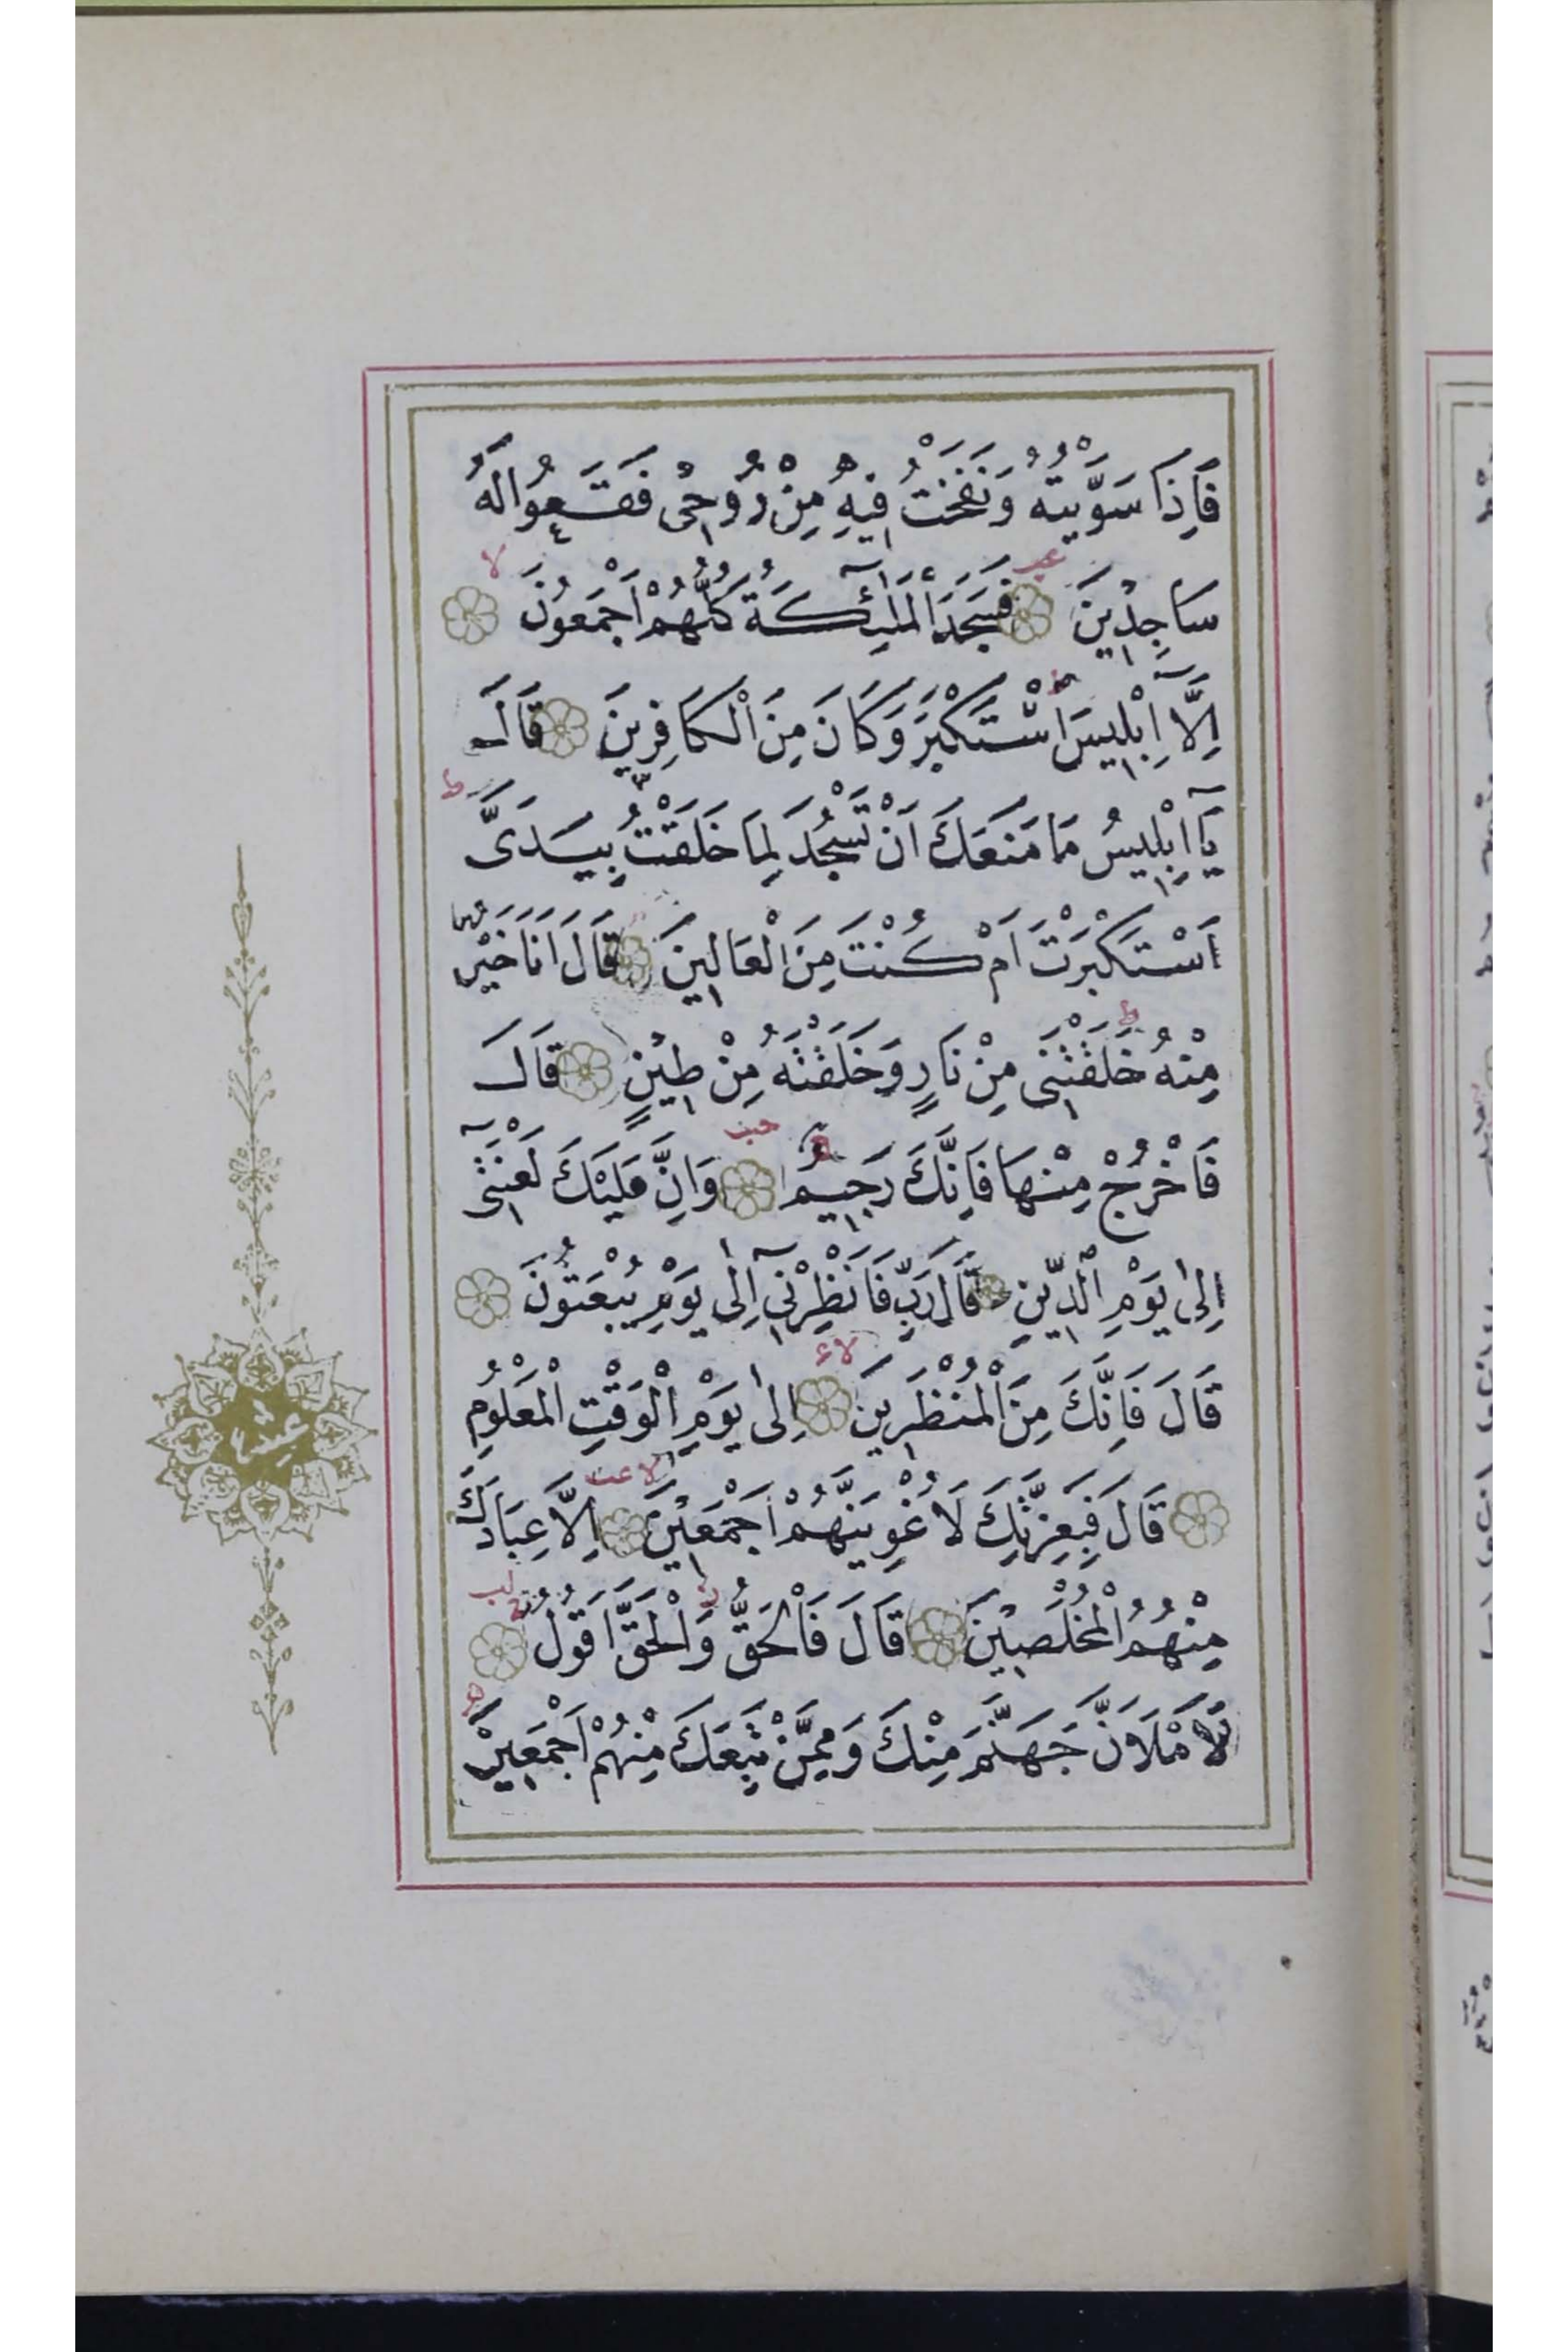 فَاِذَا سَوَّيْتُهُ وَنَفَخْتُ فِيهِ مِنْ رُوحِى فَقَعُوا لَهُ
سَاجِدِينَ فَسَجَدَ الْمَلٰٓئِكَةُ كُلُّهُمْ اَجْمَعُونَ
اِلَّٓا اِبْلِيسَ اسْتَكْبَرَ وَكَانَ مِنَ الْكَافِرِينَ قَالَ
يَٓا اِبْلِيسُ مَا مَنَعَكَ اَنْ تَسْجُدَ لِمَا خَلَقْتُ بِيَدَىَّ
اَسْتَكْبَرْتَ اَمْ كُنْتَ مِنَ الْعَالِينَ قَالَ اَنَا خَيْرٌ
مِنْهُ خَلَقْتَنِى مِنْ نَارٍ وَخَلَقْتَهُ مِنْ طِينٍ قَالَ
فَاخْرُجْ مِنْهَا فَاِنَّكَ رَجِيمٌ وَاِنَّ عَلَيْكَ لَعْنَتِٓى
اِلٰى يَوْمِ الدِّينِ قَالَ رَبِّ فَاَنْظِرْنِٓى اِلٰى يَوْمِ يُبْعَثُونَ
قَالَ فَاِنَّكَ مِنَ الْمُنْظَرِينَ اِلٰى يَوْمِ الْوَقْتِ الْمَعْلُومِ
قَالَ فَبِعِزَّتِكَ لَاُغْوِيَنَّهُمْ اَجْمَعِينَ اِلَّا عِبَادَكَ
مِنْهُمُ الْمُخْلَصِينَ قَالَ فَالْحَقُّ وَالْحَقَّ اَقُولُ
لَاَمْلَاَنَّ جَهَنَّمَ مِنْكَ وَمِمَّنْ تَبِعَكَ مِنْهُمْ اَجْمَعِينَ